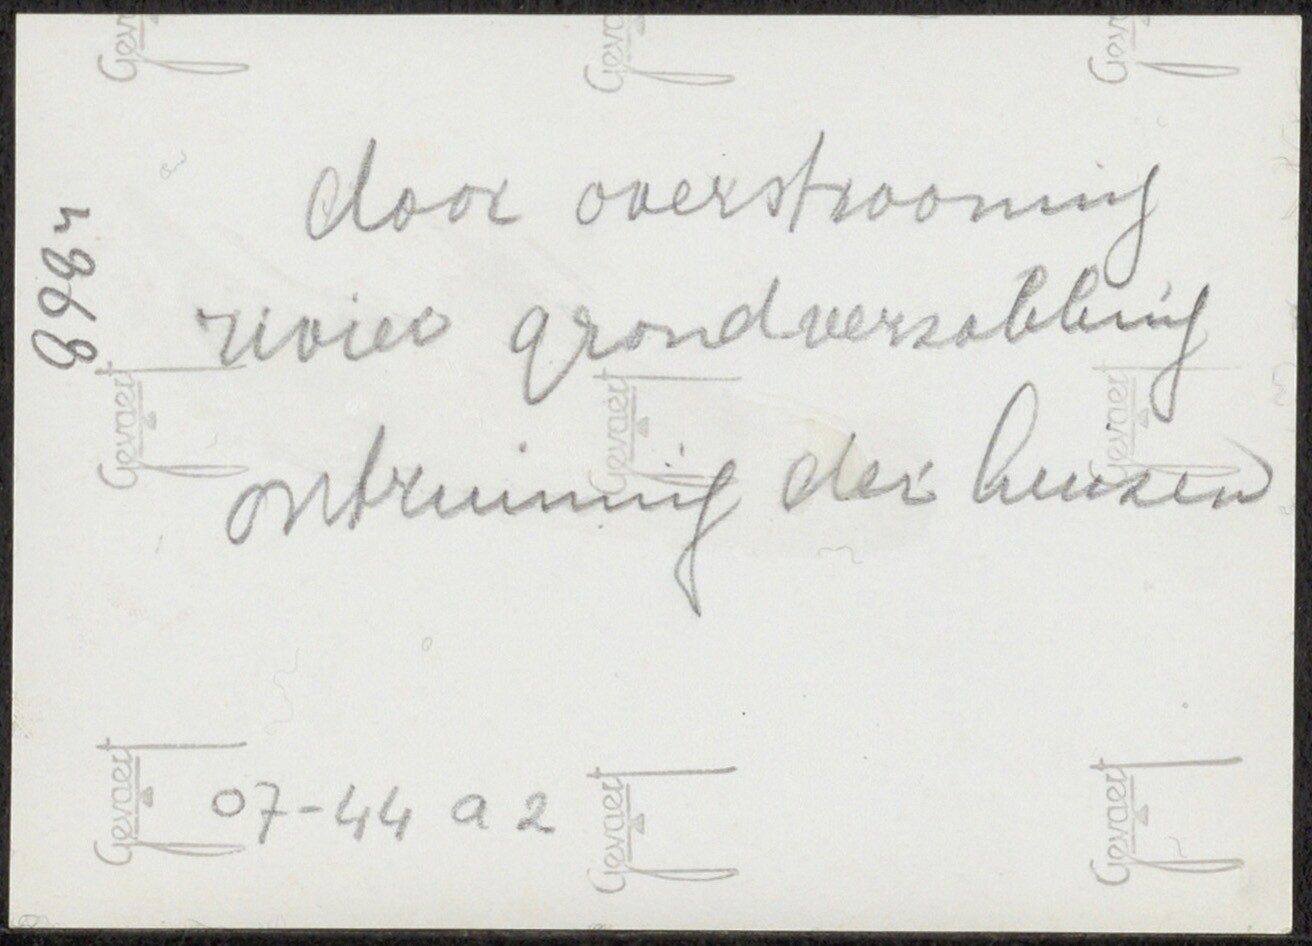 Gevaert Gevaert Gevaert
door overstrooming
rivier grondverzakking
Gevaert Gevaert Gevaert
ontruiming der huizen
07-44 a 2
Gevaert Gevaert Gevaert